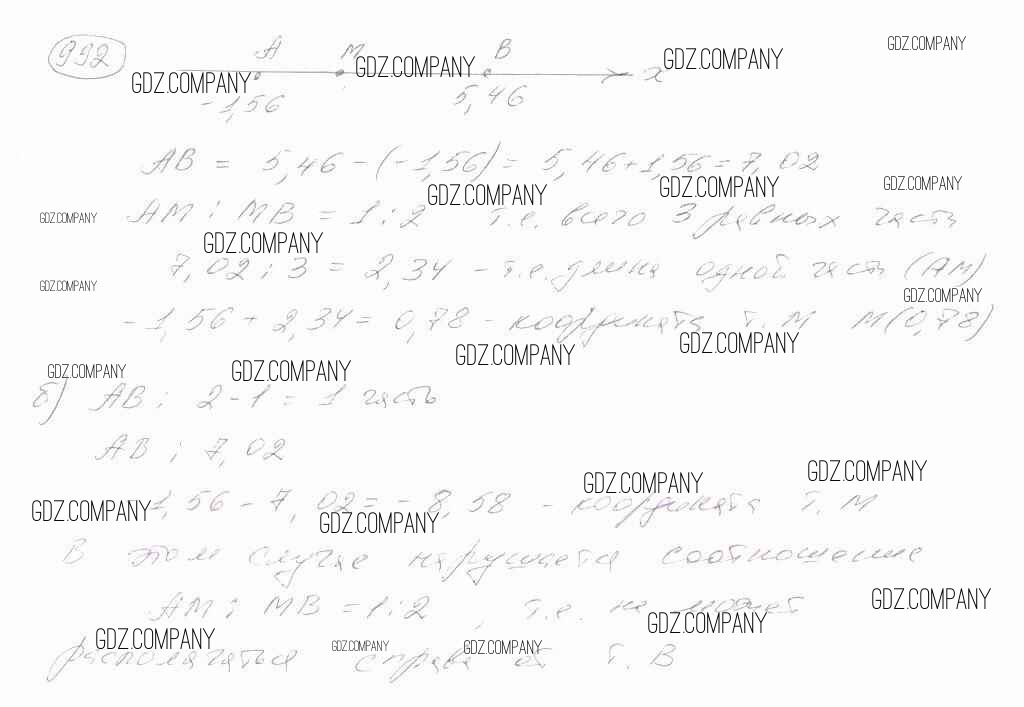 992 A M B
GDZ.COMPANY
GDZ.COMPANY GDZ.COMPANY GDZ.COMPANY x
-1,56 5,46
AB = 5,46 - (-1,56) = 5,46 + 1,56 = 7,02
GDZ.COMPANY GDZ.COMPANY GDZ.COMPANY
GDZ.COMPANY AM : MB = 1 : 2 т.е. всего 3 равных часть
GDZ.COMPANY
7,02 : 3 = 2,34 - т.е. длина одной часть (AM)
GDZ.COMPANY GDZ.COMPANY
-1,56 + 2,34 = 0,78 - координата т. M M(0,78)
GDZ.COMPANY GDZ.COMPANY GDZ.COMPANY GDZ.COMPANY
б) AB : 2 - 1 = 1 часть
AB ; 7,02
GDZ.COMPANY GDZ.COMPANY
GDZ.COMPANY 1,56 - 7,02 = - 8,58 - координата т. M
GDZ.COMPANY
В этом случае нарушается соотношение
GDZ.COMPANY
AM : MB = 1 : 2 , т.е. не может
GDZ.COMPANY GDZ.COMPANY GDZ.COMPANY GDZ.COMPANY
располагаться справа от т. B